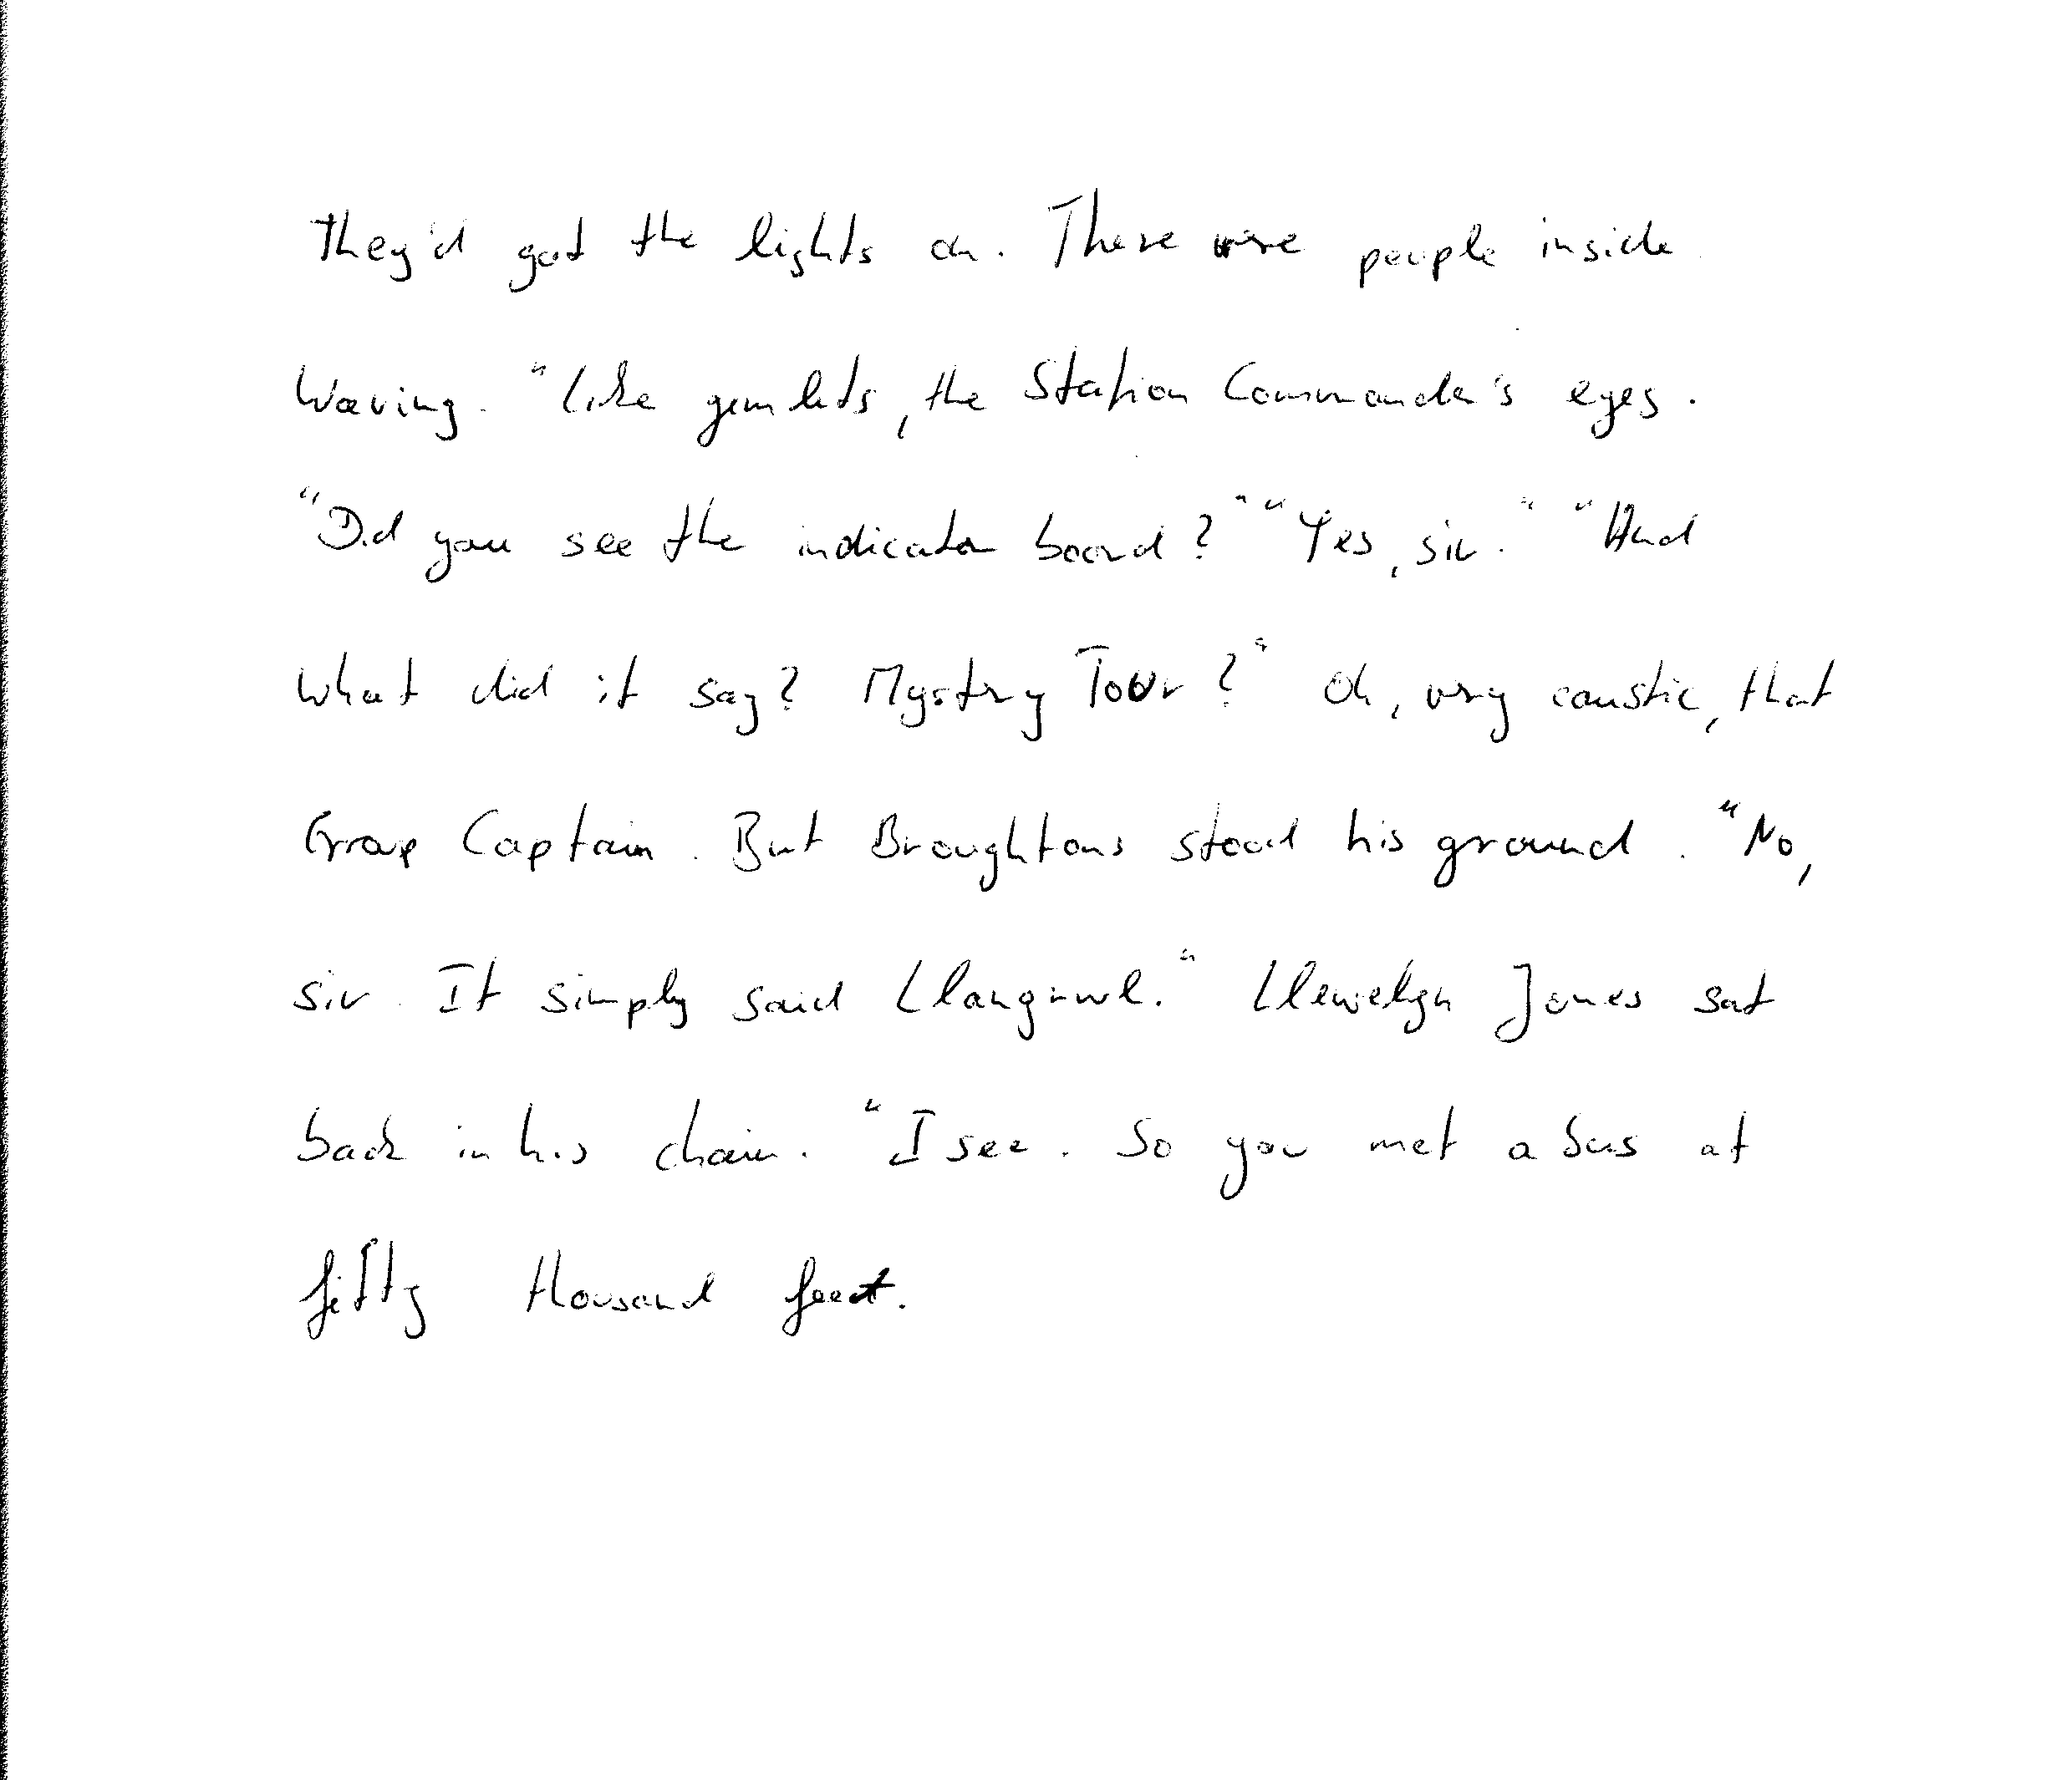 They'd got the lights on. There were people inside
waving. "Like gimlets, the Station Commander's eyes.
"Did you see the indicator board?" "Yes, sir." "And
what did it say? Mystry Tour?" Oh, very caustic, that
Group Captain. But Broughtons stood his ground. "No,
sir. It simply said Llangrwl." Llewelyn Jones sat
back in his chair. "I see. So you met a bus at
fifty thousand feet.